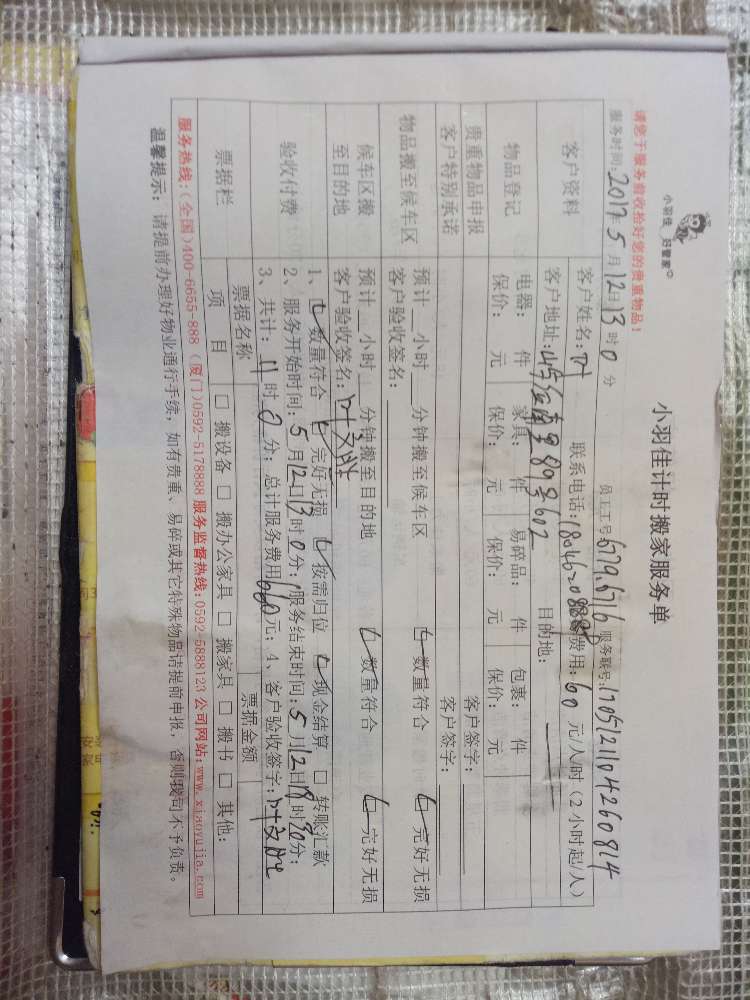 小羽佳 好管家
小羽佳计时搬家服务单
请您于服务前收拾好您的贵重物品！
员工工号：6779.6716 服务联号：1705121104260814
服务时间：2017年5月12日13时0分
客户资料
客户姓名：叶 联系电话：18046208888 费用：60元/人/时（2小时起/人）
客户地址：89号602 目的地：
物品登记
电器： 件 家具： 件 易碎品： 件 包裹： 件
保价： 元 保价： 元 保价： 元 保价： 元
贵重物品申报 客户签字：
客户特别承诺 客户签字：
物品搬至候车区
预计__小时__分钟搬至候车区 ☑数量符合 ☑完好无损
客户验收签名：
候车区搬至目的地
预计__小时__分钟搬至目的地 ☑数量符合 ☑完好无损
客户验收签名：叶
验收付费
1、☑数量符合 ☑完好无损 ☑按需归位 ☑现金结算 □转账汇款
2、服务开始时间：5月12日13时0分；服务结束时间：5月12日18时30分；
3、共计：11时0分；总计服务费用660元；4、客户验收签字：叶
票据栏
票据名称 票据金额
项目 □搬设备 □搬办公家具 □搬家具 □搬书 □其他：
服务热线：（全国）400-6655-888（厦门）0592-5178888 服务监督热线：0592-5888123 公司网站：www.xiaoyujia.com
温馨提示：请提前办理好物业通行手续，如有贵重、易碎或其它特殊物品请提前申报，否则我司不予负责。